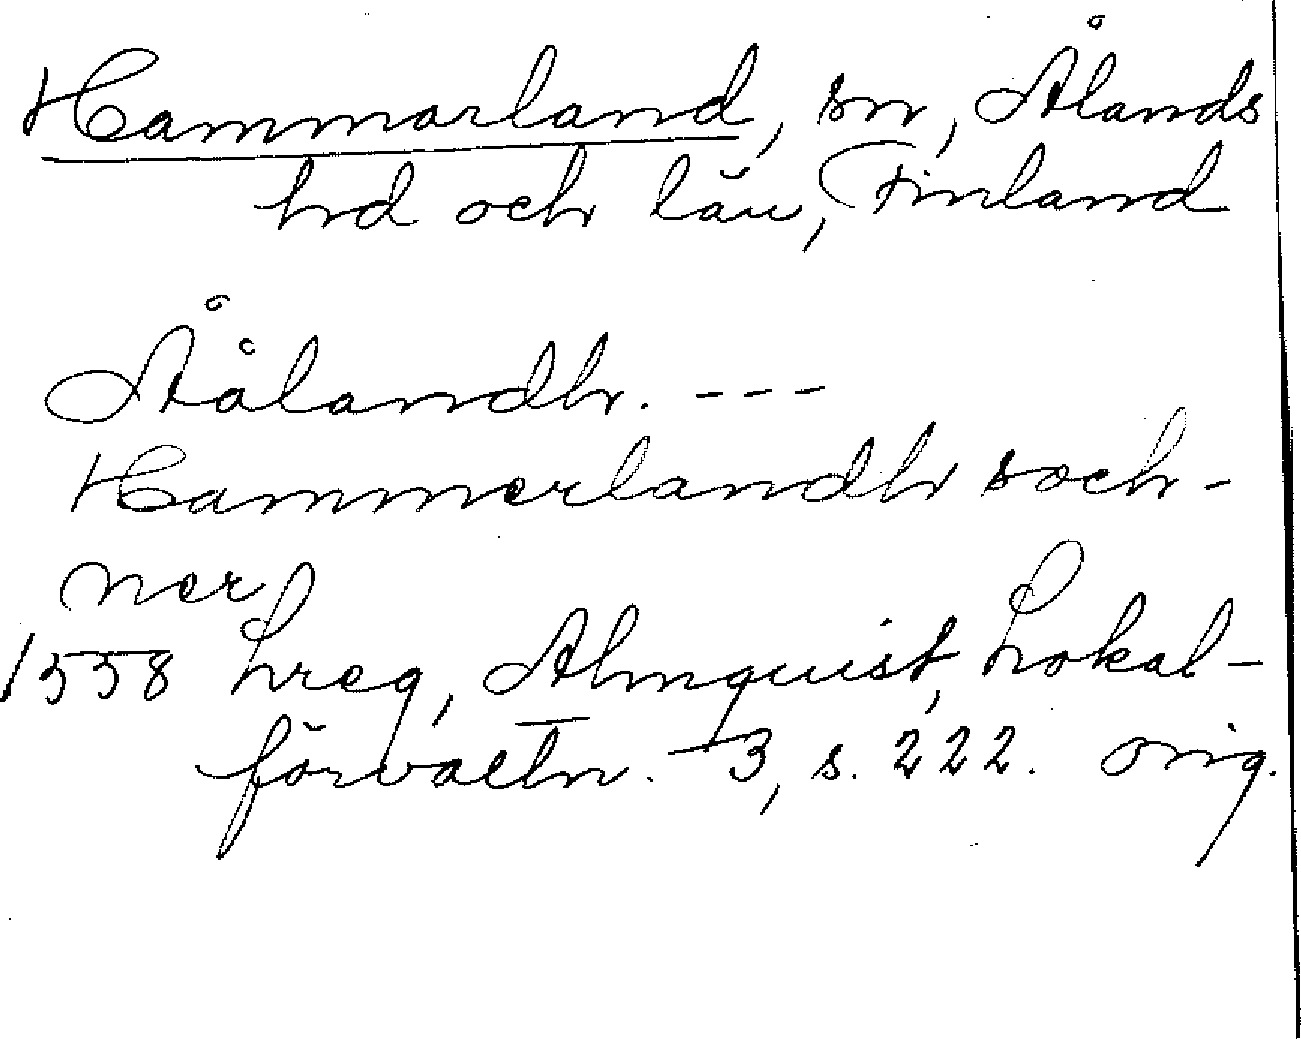 Hammarland, sn, Ålands
hd och län, Finland
Åålandh. ---
Hammerlandh soch-
ner
1558 Lreg, Almquist, Lokal-
förvaltn. 3, s. 222. orig.